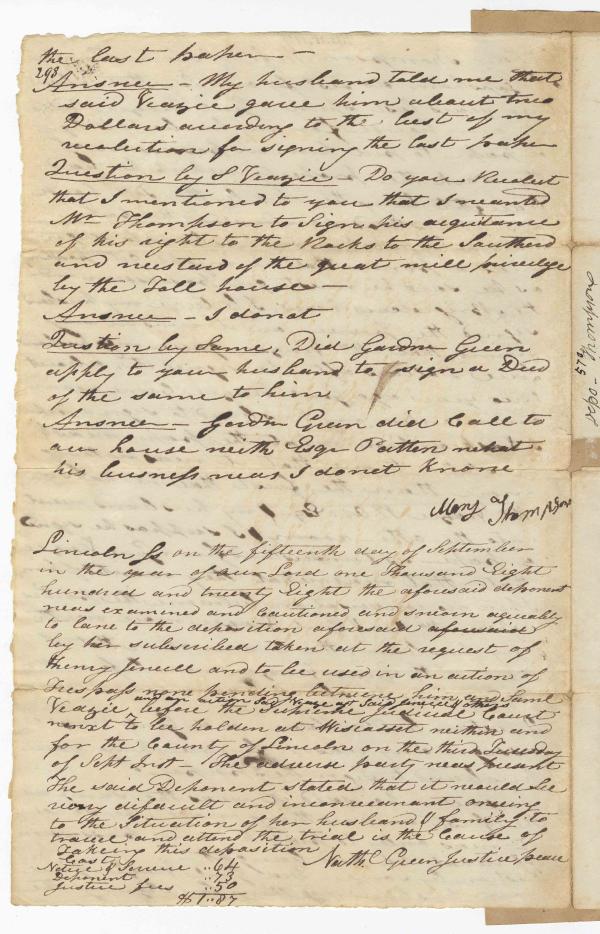 the last paper —
298
Answer – My husband told me that
said Veazie gave him about two
Dollars according to the best of my
recolection for signing the last paper
Question by S Veazie – Do you Recolect
that I mentioned to you that I wanted
Mr Thompson to Sign his aquitance
of his right to the Rocks to the Southerd
and westard of the great mill priviledge
by the Toll house —
Answer – I do not
Question by Same, Did Gardnr Green
apply to your husband to sign a Deed
of the same to him
Answer – Gardnr Green did Call to
our house with Esqr Patten what
his business was I do not know
Mary Thompson
Lincoln Ss on the fifteenth day of September
in the year of our Lord one Thousand Eight
hundred and twenty Eight the aforesaid deponent
was examined and Cautioned and sworn agreably
to law to the deposition aforesaid aforesaid
by her subscribed taken at the request of
Henry Jewell and to be used in an action of
Trespass now pending between him and Saml
and an action Said Veazie vs Said Jewell & others
Veazie before the Supreme Judicial Court
next to be holden at Wiscasset within and
for the County of Lincoln on the third Tuesday
of Sept Inst – The adverse party was present
The said Deponent stated that it would be
very dificult and inconvenant owing
to the Situation of her husband & family to
travel and attend the trial is the Cause of
Takeing this deposition
Nathl Green Justice peace
Costs
Notice & Service ..64
Deponent ..73
Justice fees ..50
$1..87
Depo– Thompson